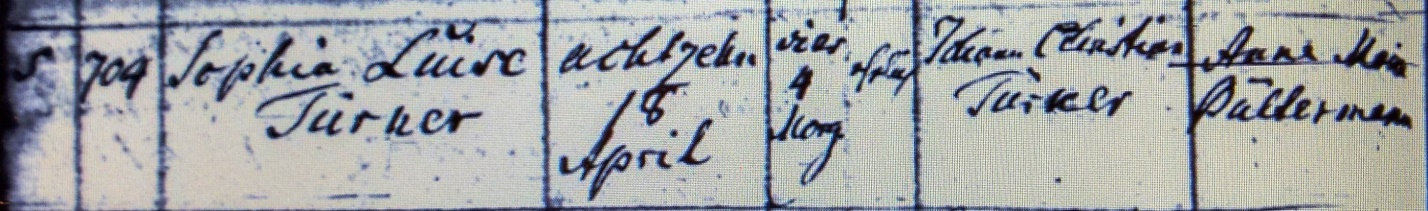 5
709
Sophia Luise
Türner
achtzehn
18
April
vier
4
Morg
Johann Christian
Türner
Anna Maria
Püttermann